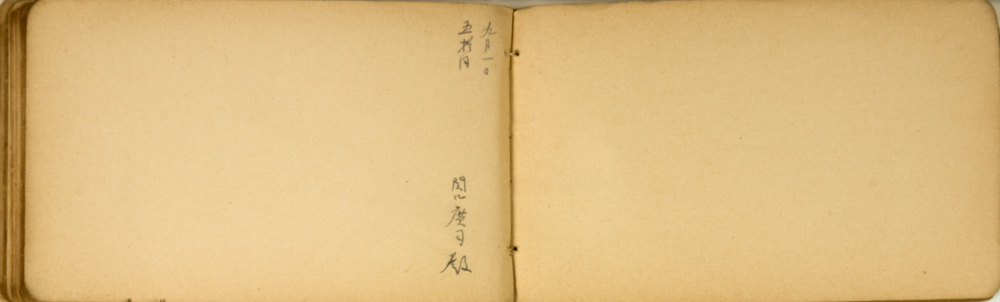 九月一日
五拾円
関口廣司殿